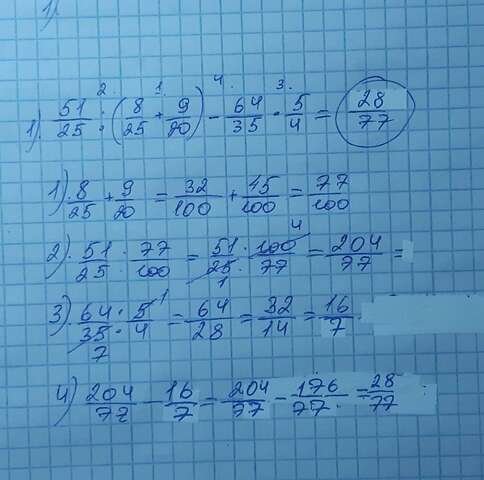 1).
2. 1. 4. 3.
1). 51/25 : (8/25 + 9/20) - 64/35 · 5/4 = 28/77
1). 8/25 + 9/20 = 32/100 + 45/100 = 77/100
2). 51/25 : 77/100 = 51/25 1 · 100/77 4 = 204/77 =
3). 64 · 5/35 · 4 1 7 = 64/28 = 32/14 = 16/7
4) 204/77 - 16/7 = 204/77 - 176/77. = 28/77